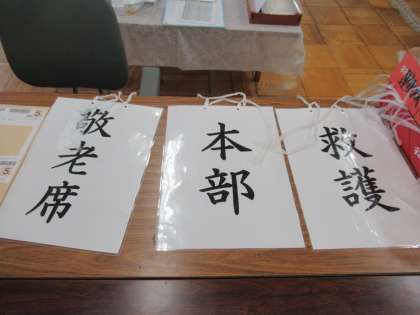 敬老席
本部
救護